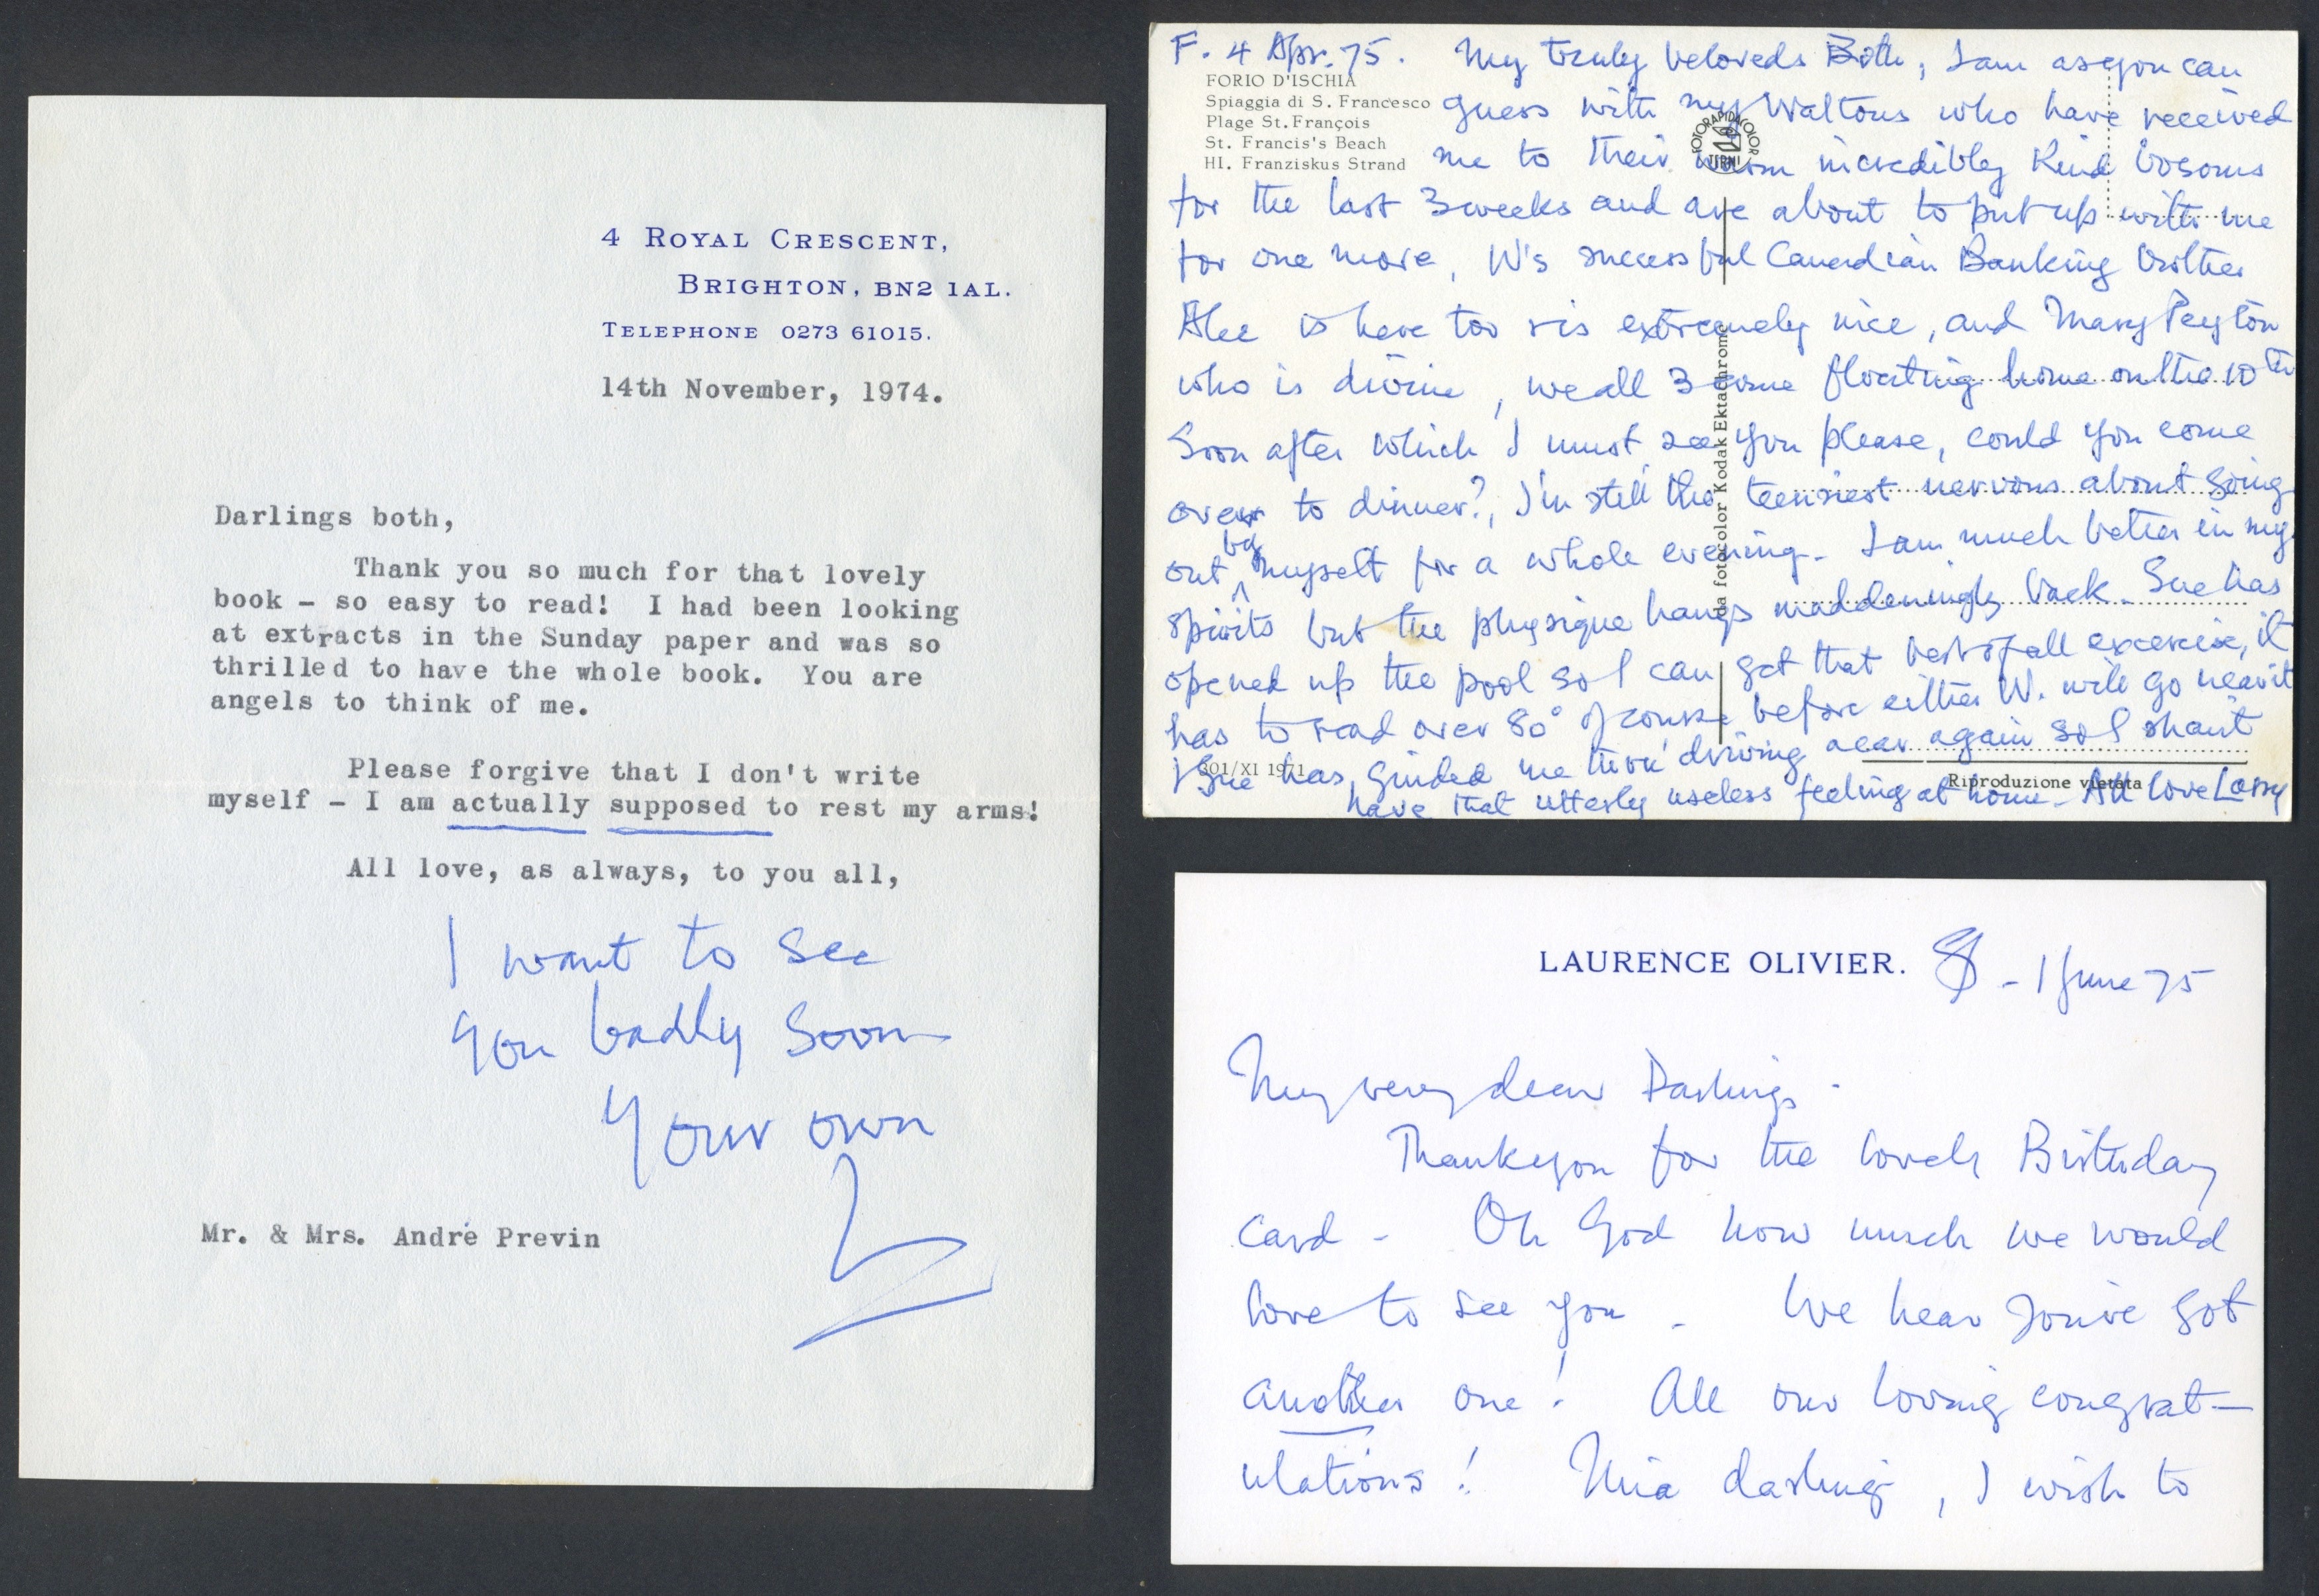 4 ROYAL CRESCENT,
BRIGHTON, BN2 1AL.
TELEPHONE 0273 61015.
14th November, 1974.
Darlings both,
Thank you so much for that lovely
book - so easy to read! I had been looking
at extracts in the Sunday paper and was so
thrilled to have the whole book. You are
angels to think of me.
Please forgive that I don't write
myself - I am actually supposed to rest my arms!
All love, as always, to you all,
I want to see
you badly soon
Your own
L
Mr. & Mrs. Andrè Previn
F. 4 Apr. 75. My truly beloveds Both, I am as you can
FORIO D'ISCHIA
Spiaggia di S. Francesco
Plage St. François
St. Francis's Beach
Hl. Franziskus Strand
guess with my Waltons who have received
me to their warm incredibly kind bosoms
for the last 3 weeks and are about to put up with me
for one more, W's successful Canadian Banking brother
Alec is here too & is extremely nice, and Mary Peyton
who is divine, we all 3 come floating home on the 10th
Soon after which I must see you please, could you come
over to dinner?, I'm still the teensiest nervous about going
out by myself for a whole evening - I am much better in my
spirits but the physique hangs maddeningly back - Sue has
opened up the pool so I can get that best of all excercise, it
has to read over 80° of course before either W. will go near it
Sue has guided me thro' driving a car again so I shant
have that utterly useless feeling at home - All love Larry
FOTORAPIDACOLOR
TERNI
da fotocolor Kodak Ektachrome
301/XI 1971
Riproduzione vietata
LAURENCE OLIVIER. - 1 June 75
My very dear Darlings -
Thankyou for the lovely Birthday
card - Oh God how much we would
love to see you - We hear you've got
another one! All our loving congrat-
ulations! Mia darling, I wish to